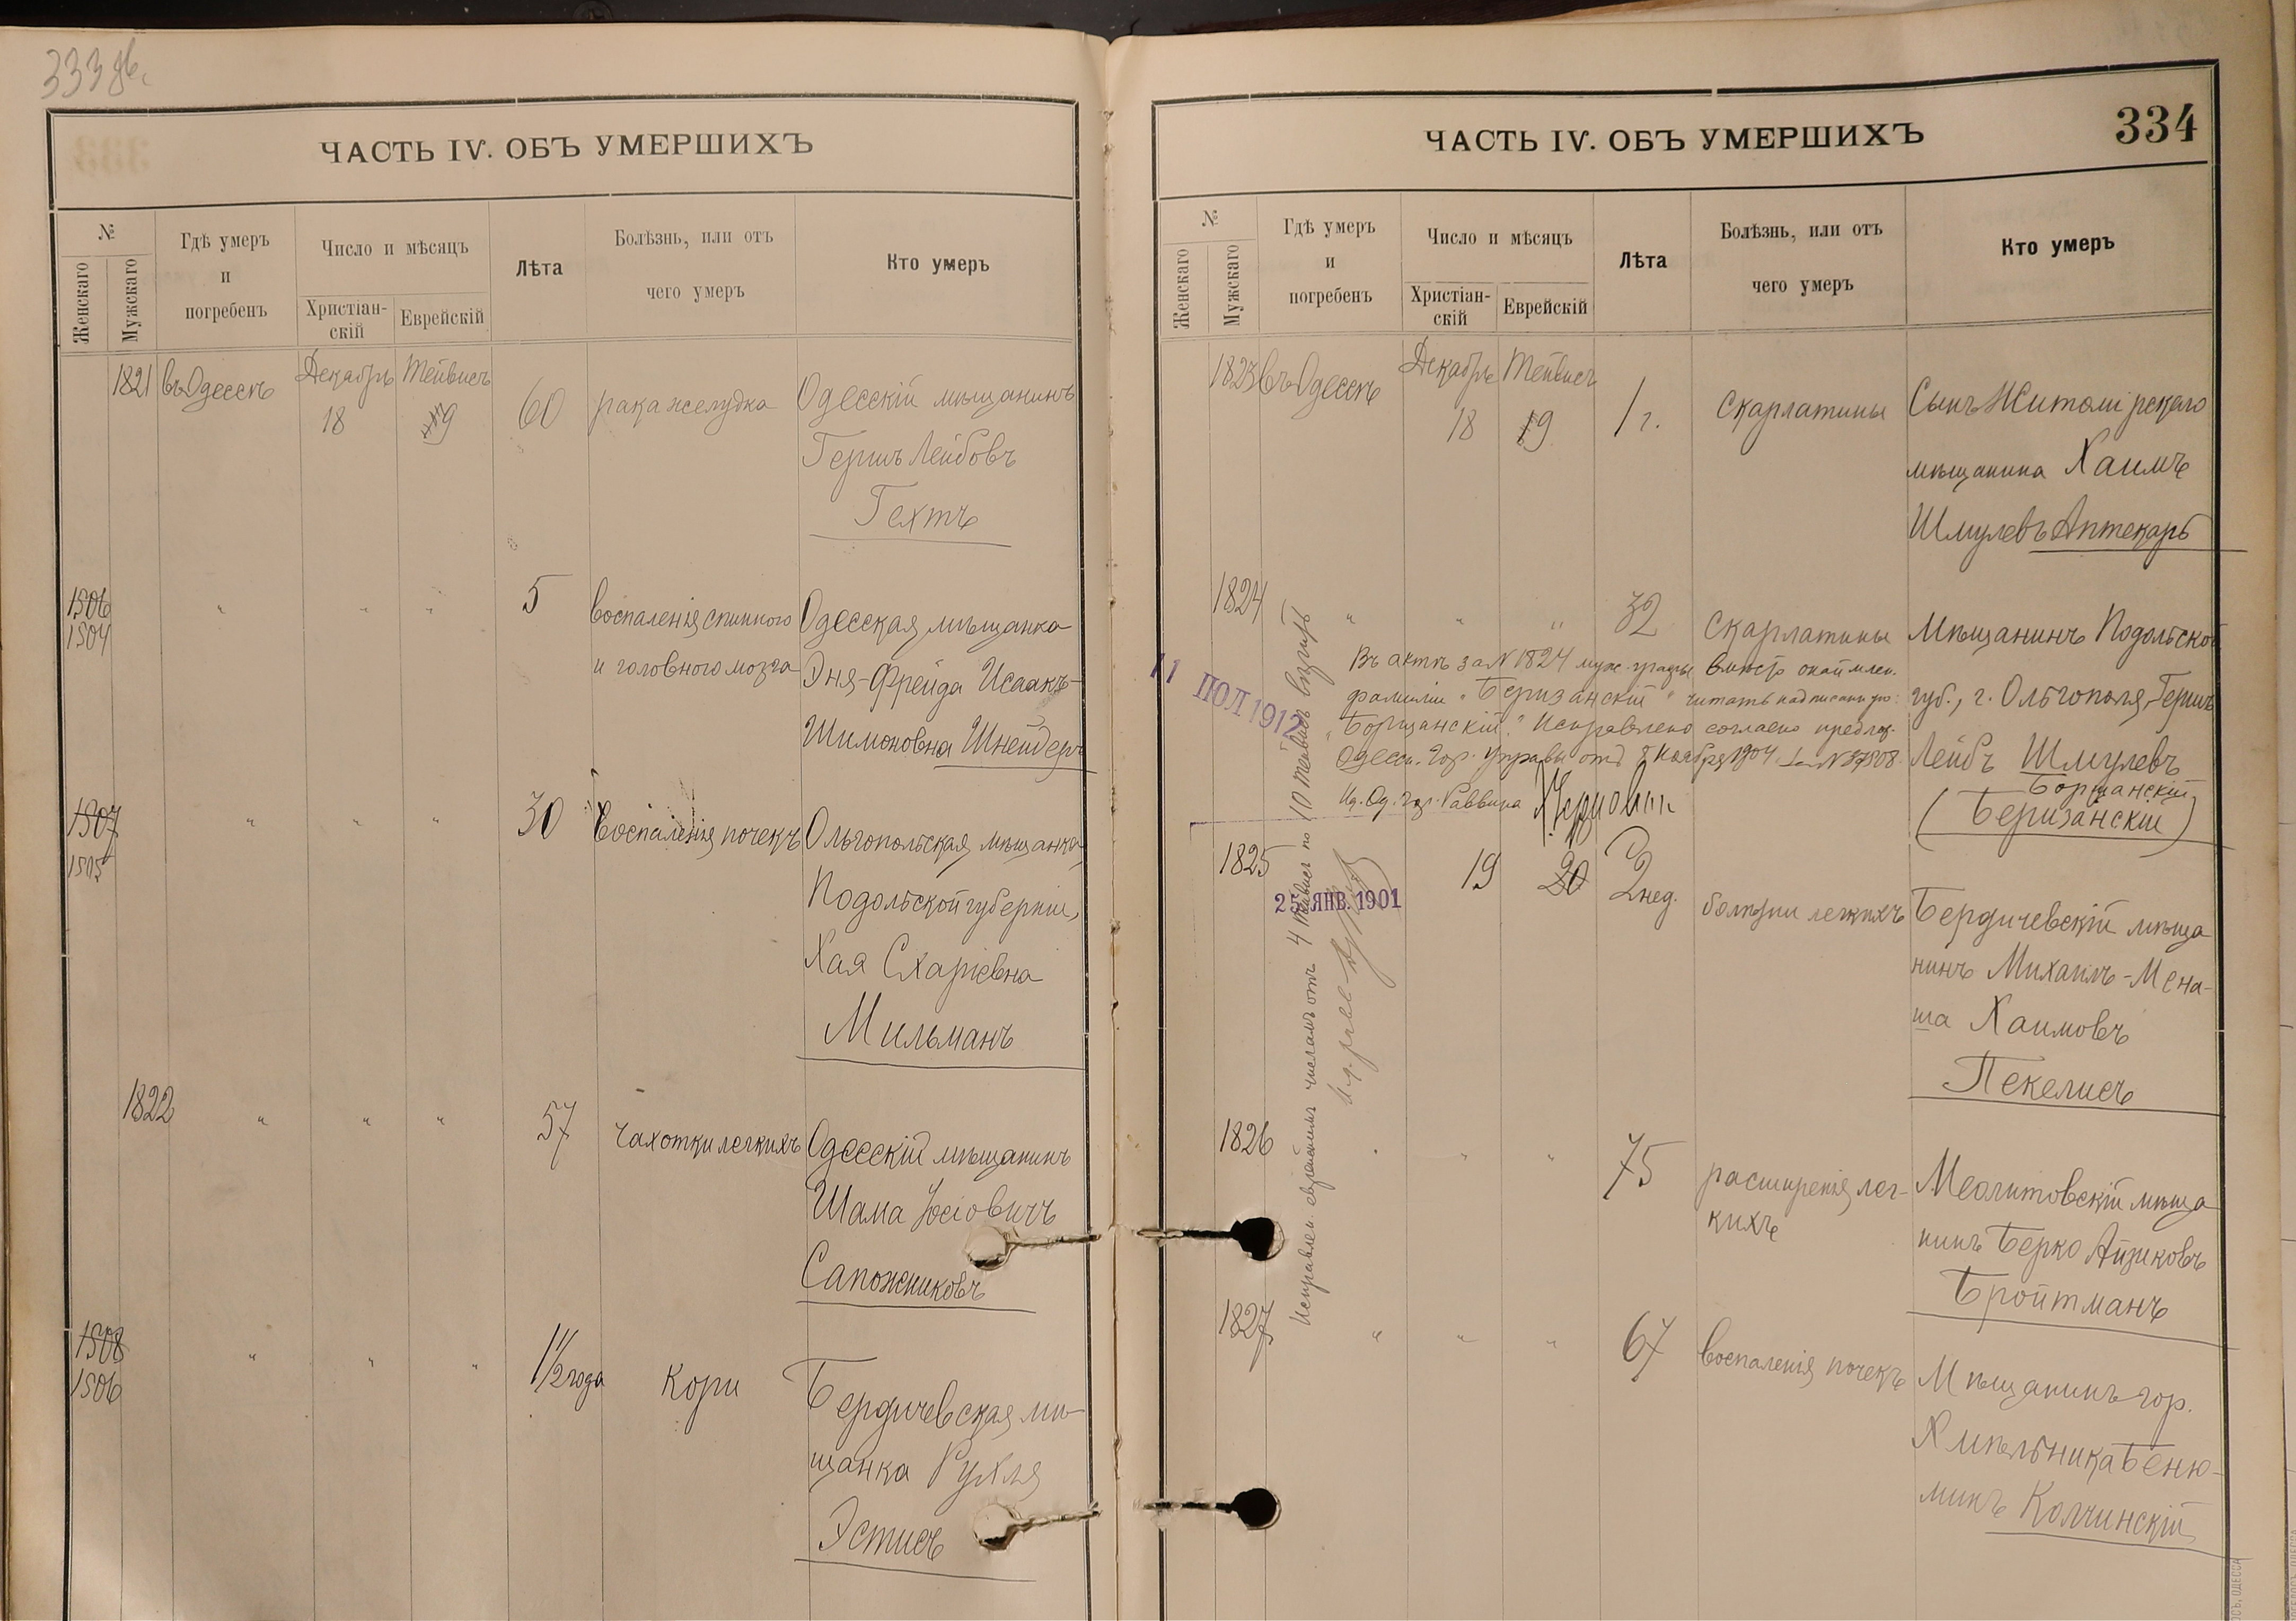 333 об.
ЧАСТЬ IV. ОБЪ УМЕРШИХЪ
№
Женскаго
Мужскаго
Гдѣ умеръ
и
погребенъ
Число и мѣсяцъ
Христіан-
скій
Еврейскій
Лѣта
Болѣзнь, или отъ
чего умеръ
Кто умеръ
1821 въ Одессѣ Декабрь Тейвисъ 60 рака желудка Одесскій мѣщанинъ
18 9 Гершъ Лейбовъ
Гехтъ
1506 " " " 5 воспаленія спинного Одесская мѣщанка
1504 и головного мозга Эня-Фрейда Исаакъ-
Шимоновна Шнейдеръ
1507 " " " 30 воспаленія почекъ Ольгопольская мѣщанка
1505 Подольской губерніи,
Хая Схаріевна
Мильманъ
1822 " " " 57 чахотки легкихъ Одесскій мѣщанинъ
Шама Іосіовичъ
Сапожниковъ
1508 " " " 1 1/2 года кори Бердичевская мѣ-
1506 щанка Рухля
Эстисъ
334
ЧАСТЬ IV. ОБЪ УМЕРШИХЪ
№
Женскаго
Мужскаго
Гдѣ умеръ
и
погребенъ
Число и мѣсяцъ
Христіан-
скій
Еврейскій
Лѣта
Болѣзнь, или отъ
чего умеръ
Кто умеръ
1823 въ Одессѣ Декабрь Тейвисъ 1 г. скарлатины Сынъ Житомірскаго
18 9 мѣщанина Хаимъ
Шмулевъ Аптекарь
1824 " " " 32 скарлатины Мѣщанинъ Подольской
губ., г. Ольгополя, Гершъ
Лейбъ Шмулевъ
Борщанскій
(Беризанскій)
Въ актѣ за № 1824 муж. графы вмѣсто окаймлен.
фамиліи "Беризанскій" читать надписанную:
"Борщанскій". Исправлено согласно предлож.
Одесс. Гор. Управы отъ Ноября 1904 за №
Ид. Од. гор. Раввина
11 ІЮЛ 1912
1825 19 20 2 нед. болѣзни легкихъ Бердичевскій мѣща
нинъ Михаилъ-Мена-
ша Хаимовъ
Пекелисъ
25 ЯНВ. 1901
Исправлен. еврейскимъ числамъ отъ 4 Тейвисъ по 10 Тейвисъ вѣрить
И.д. равв.
1826 " " " 75 расширенія лег- Меолитовскій мѣща
кихъ нинъ Берко Айзиковъ
Бройтманъ
1827 " " " 67 воспаленія почекъ Мѣщанинъ гор.
Хмѣльника Беню-
минъ Колчинскій